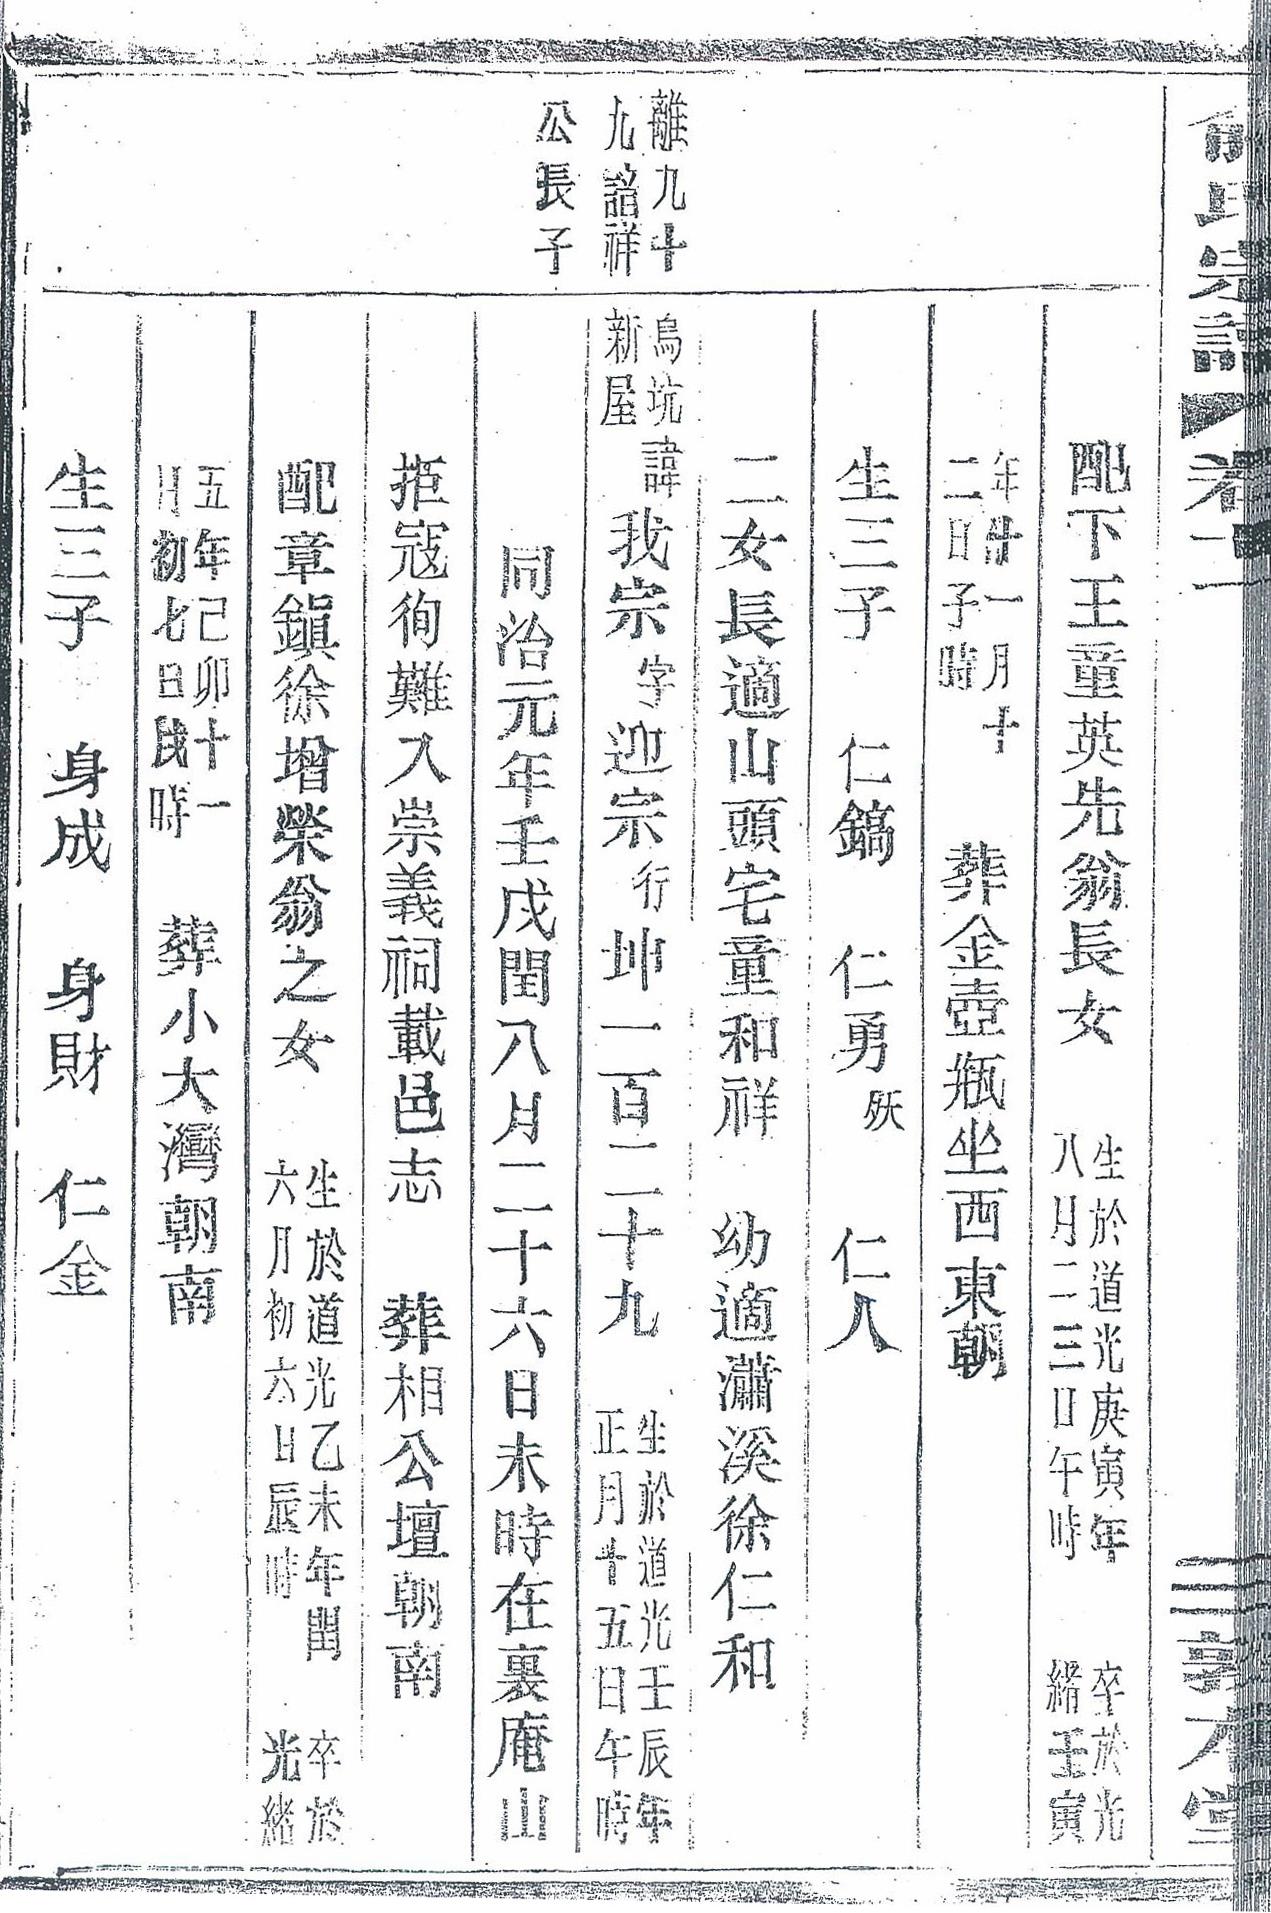 俞氏宗譜 卷二
三 敦本堂
配下王童英先翁長女 生於道光庚寅年
八月二三日午時 卒於光
緒壬寅
年十一月十
二日子時 葬金壺瓶坐西東朝
生三子 仁鎬 仁勇 殀 仁人
二女長適山頭宅童和祥 幼適瀟溪徐仁和
離九十
九詔祥
公長子
鳥坑
新屋
諱我宗 字迎宗 行坤一百二十九 生於道光壬辰年
正月十五日午時
同治元年壬戌閏八月二十六日未時在裏庵山
拒寇徇難入崇義祠載邑志 葬相公壇朝南
配章鎭徐增榮翁之女 生於道光乙未年閏
六月初六日辰時 卒於
光緒
五年己卯十一
月初七日戌時 葬小大灣朝南
生三子 身成 身財 仁金